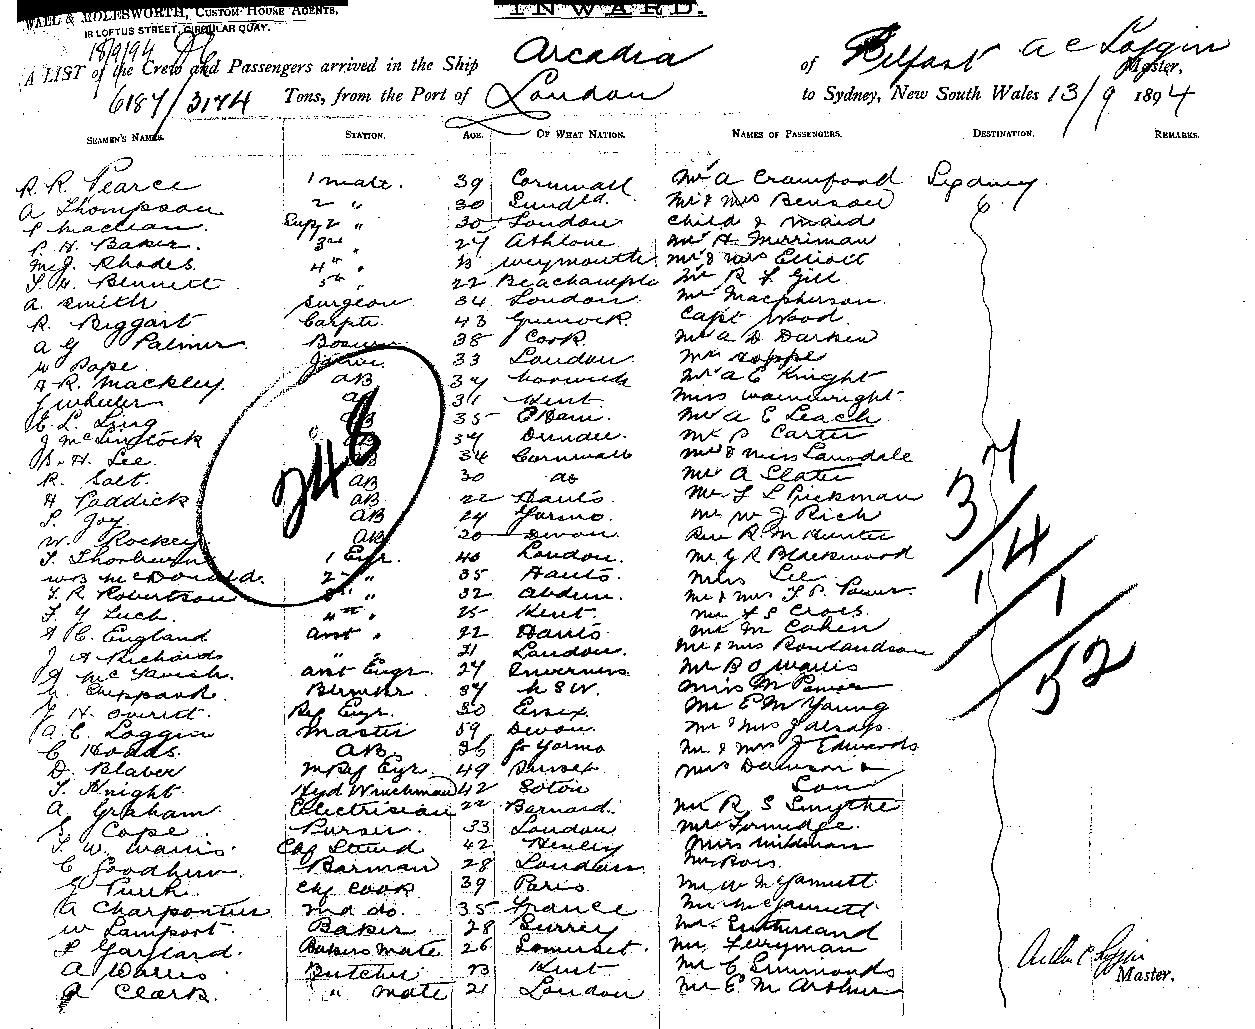 WALL & MOLESWORTH, CUSTOM HOUSE AGENTS.
INWARD.
18 LOFTUS STREET, CIRCULAR QUAY.
18/9/94
A LIST of the Crew and Passengers arrived in the Ship Arcadia of Belfast A C Loggin Master,
6187/3174 Tons, from the Port of London to Sydney, New South Wales 13/9 1894
SEAMEN'S NAMES. STATION. AGE. OF WHAT NATION. NAMES OF PASSENGERS. DESTINATION. REMARKS.
R. R. Pearce 1 mate. 39 Cornwall Mr A Crawford Sydney
A Thompson 2 " 30 Mr & Mrs Benson
Maclean Supy 2 " 30 London Child & Maid
P. H. Baker. 3rd " 27 Athlone Mr H Merriman
Rhodes 4th " 23 Weymouth Mr & Mrs Elliott
Bennett 5th " 22 Mr R F Gill
A Smith Surgeon 34 London Mr Macpherson
R. Biggart Carptr. 43 Greenock Capt Wood
A G Palmer Bosun 38 Cook Mr A D Darken
W Pope 33 London Mr Hoppe
H R. Mackley AB 37 Norwich Mr A E Knight
J Wheeler AB 31 Kent Miss Wainwright
E. L. Long AB 35 E Ham Mr A E Leach
J McLintock 37 Dundee Mr P Carter
B. H. Lee B 34 Cornwall Mr & Miss Lansdale
R. Salt AB 30 do Mr A Slater
H Paddick AB 22 Hants Mr F L Prickman
S. Joy AB 24 Yarmo Mr W J Rich
W. Rockey AB 20 Devon Rev R. M Hunter
T. 1 Engr. 40 London Mr G R Blackwood
W B McDonald. 2nd " 35 Hants Miss Lee
T. R. Robertson 3rd " 32 Abdeen Mr & Mrs T P Power
F. G Luck 4th " 25 Kent Mr F S Cross
H C. England asst " 22 Hants Mr M Cohen
J A Richards " " 21 London Mr & Mrs Rowlandson
asst Engr 27 Inverness Mr B O Wallis
Bermkr 37 N S W. Miss M Power
J H. Overett Ref Engr. 30 Essex Mr E M Young
A. C. Loggin Master 59 Devon Mr & Mrs J Alsop
C Hodds AB 36 Gr Yarmo Mr & Mrs J Edwards
D. Blaber m Ref Engr. 49 Sussex Mrs Dawson &
Son
T. Knight Hyd Winchman 42 Soton
A. Graham Electrician 22 Barnard Mr R S Smythe
E Cope Purser. 33 London
T. W. Wallis Chf Steward 42 Henley Miss Mildman
C Goodhew Barman 28 London Mr Ross.
Chf Cook 39 Paris
A Charpontier 2nd do. 35 France
W Lamport Baker 28 Surrey Mr Sutherland
F Garland. Bakers Mate 26 Somerset. Mr Ferryman
A Wallis Butcher 23 Kent Mr C Simmonds
A Clark. " mate 21 London Mr E M Arthur
248
37/14/1
52
Arthur C Loggin
Master.